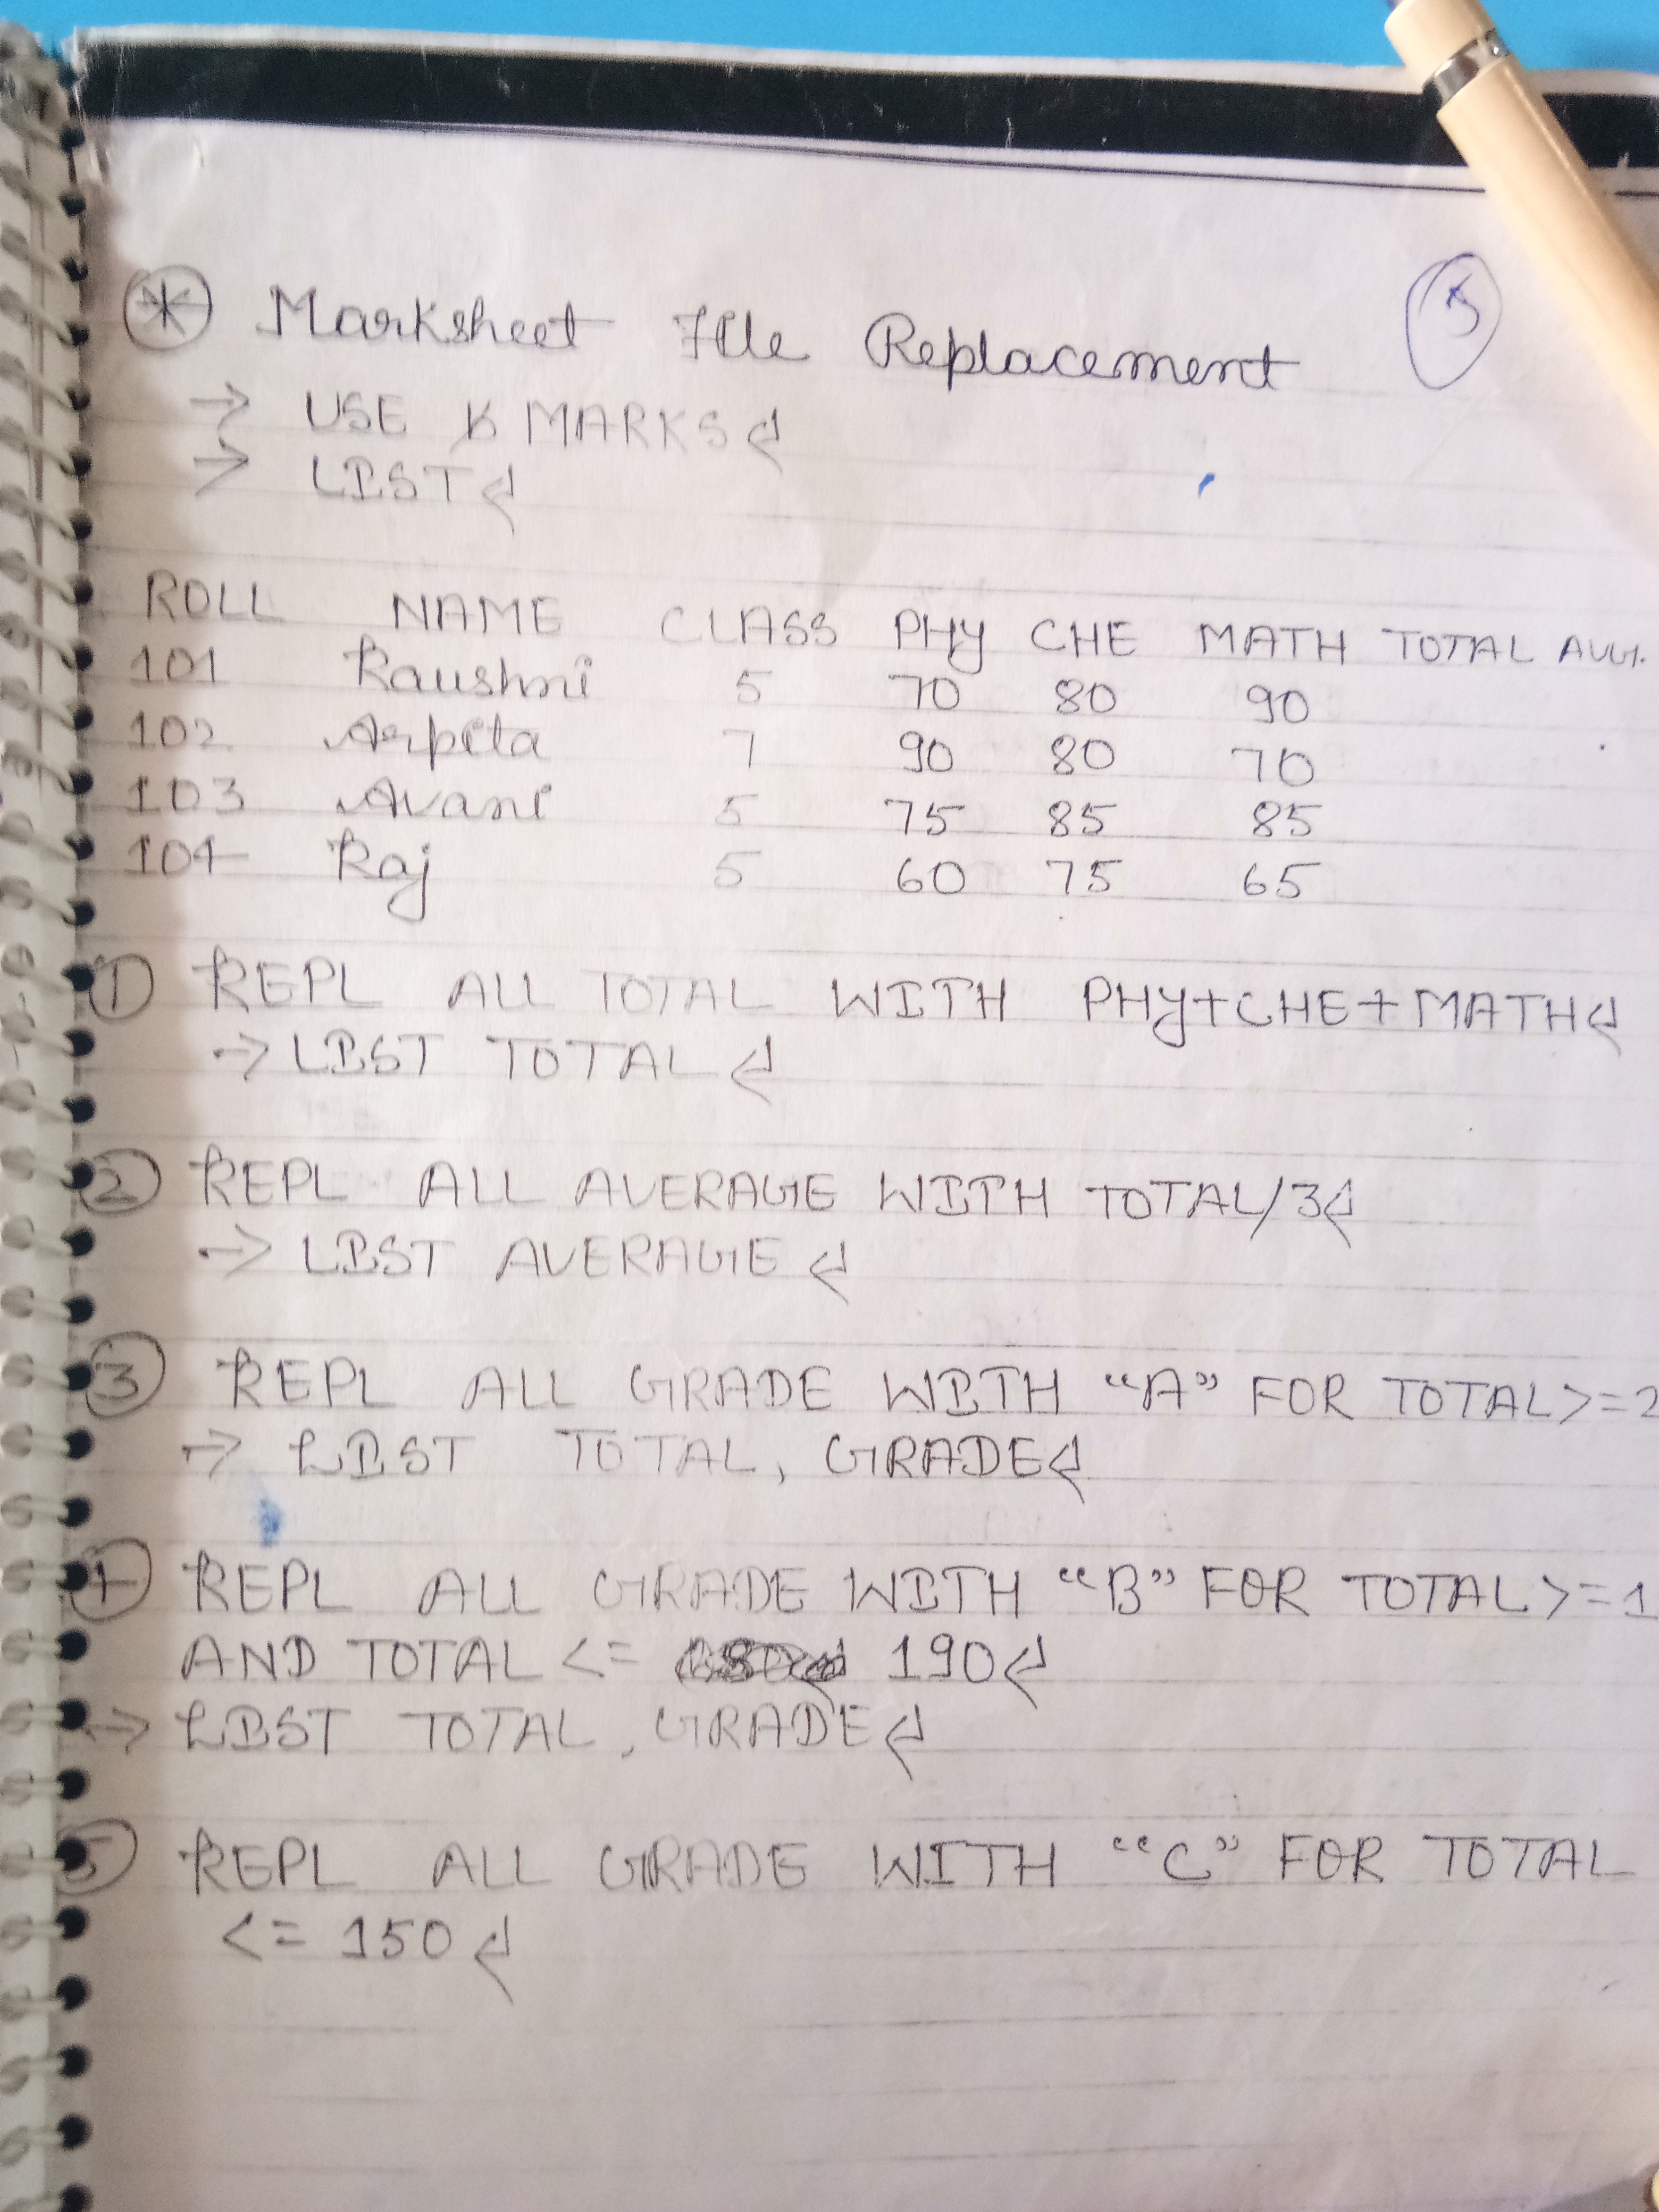 * Marksheet File Replacement 5
→ USE MARKS
→ LIST
ROLL NAME CLASS PHY CHE MATH TOTAL AVG.
101 Raushni 5 70 80 90
102 Arpita 7 90 80 70
103 Avani 5 75 85 85
104 Raj 5 60 75 65
1 REPL ALL TOTAL WITH PHY+CHE+MATH
→ LIST TOTAL
2 REPL ALL AVERAGE WITH TOTAL/3
→ LIST AVERAGE
3 REPL ALL GRADE WITH “A” FOR TOTAL>=2
→ LIST TOTAL, GRADE
4 REPL ALL GRADE WITH “B” FOR TOTAL>=1
AND TOTAL <= 190
→ LIST TOTAL, GRADE
5 REPL ALL GRADE WITH “C” FOR TOTAL
<= 150